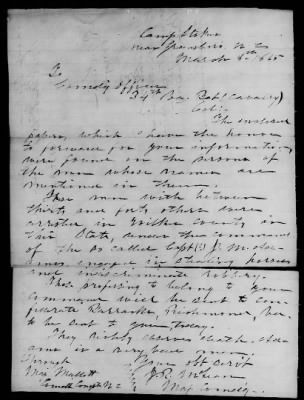 Camp Stokes
near Greensboro N.C.
March 8th 1865
To
Comdg Officer
34th Va. Batl Cavalry
The enclosed
papers, which I have the honor
to forward for your information,
were found on the persons of
the men whose names are
mentioned in them.
These men with between
thirty and forty others were
arrested in Wilkes county in
this State, under the command
of the so called Capt(?)
engaged in stealing horses
and indiscriminate robbery.
Those professing to belong to your
command will be sent to
Barracks, Richmond, Va.
to be sent to you, today.
They richly deserve death
are a very
Your obt servt
J.R. McLean
Maj Comdg
Through
Maj Mallett
Comdt Conscpts N.C.